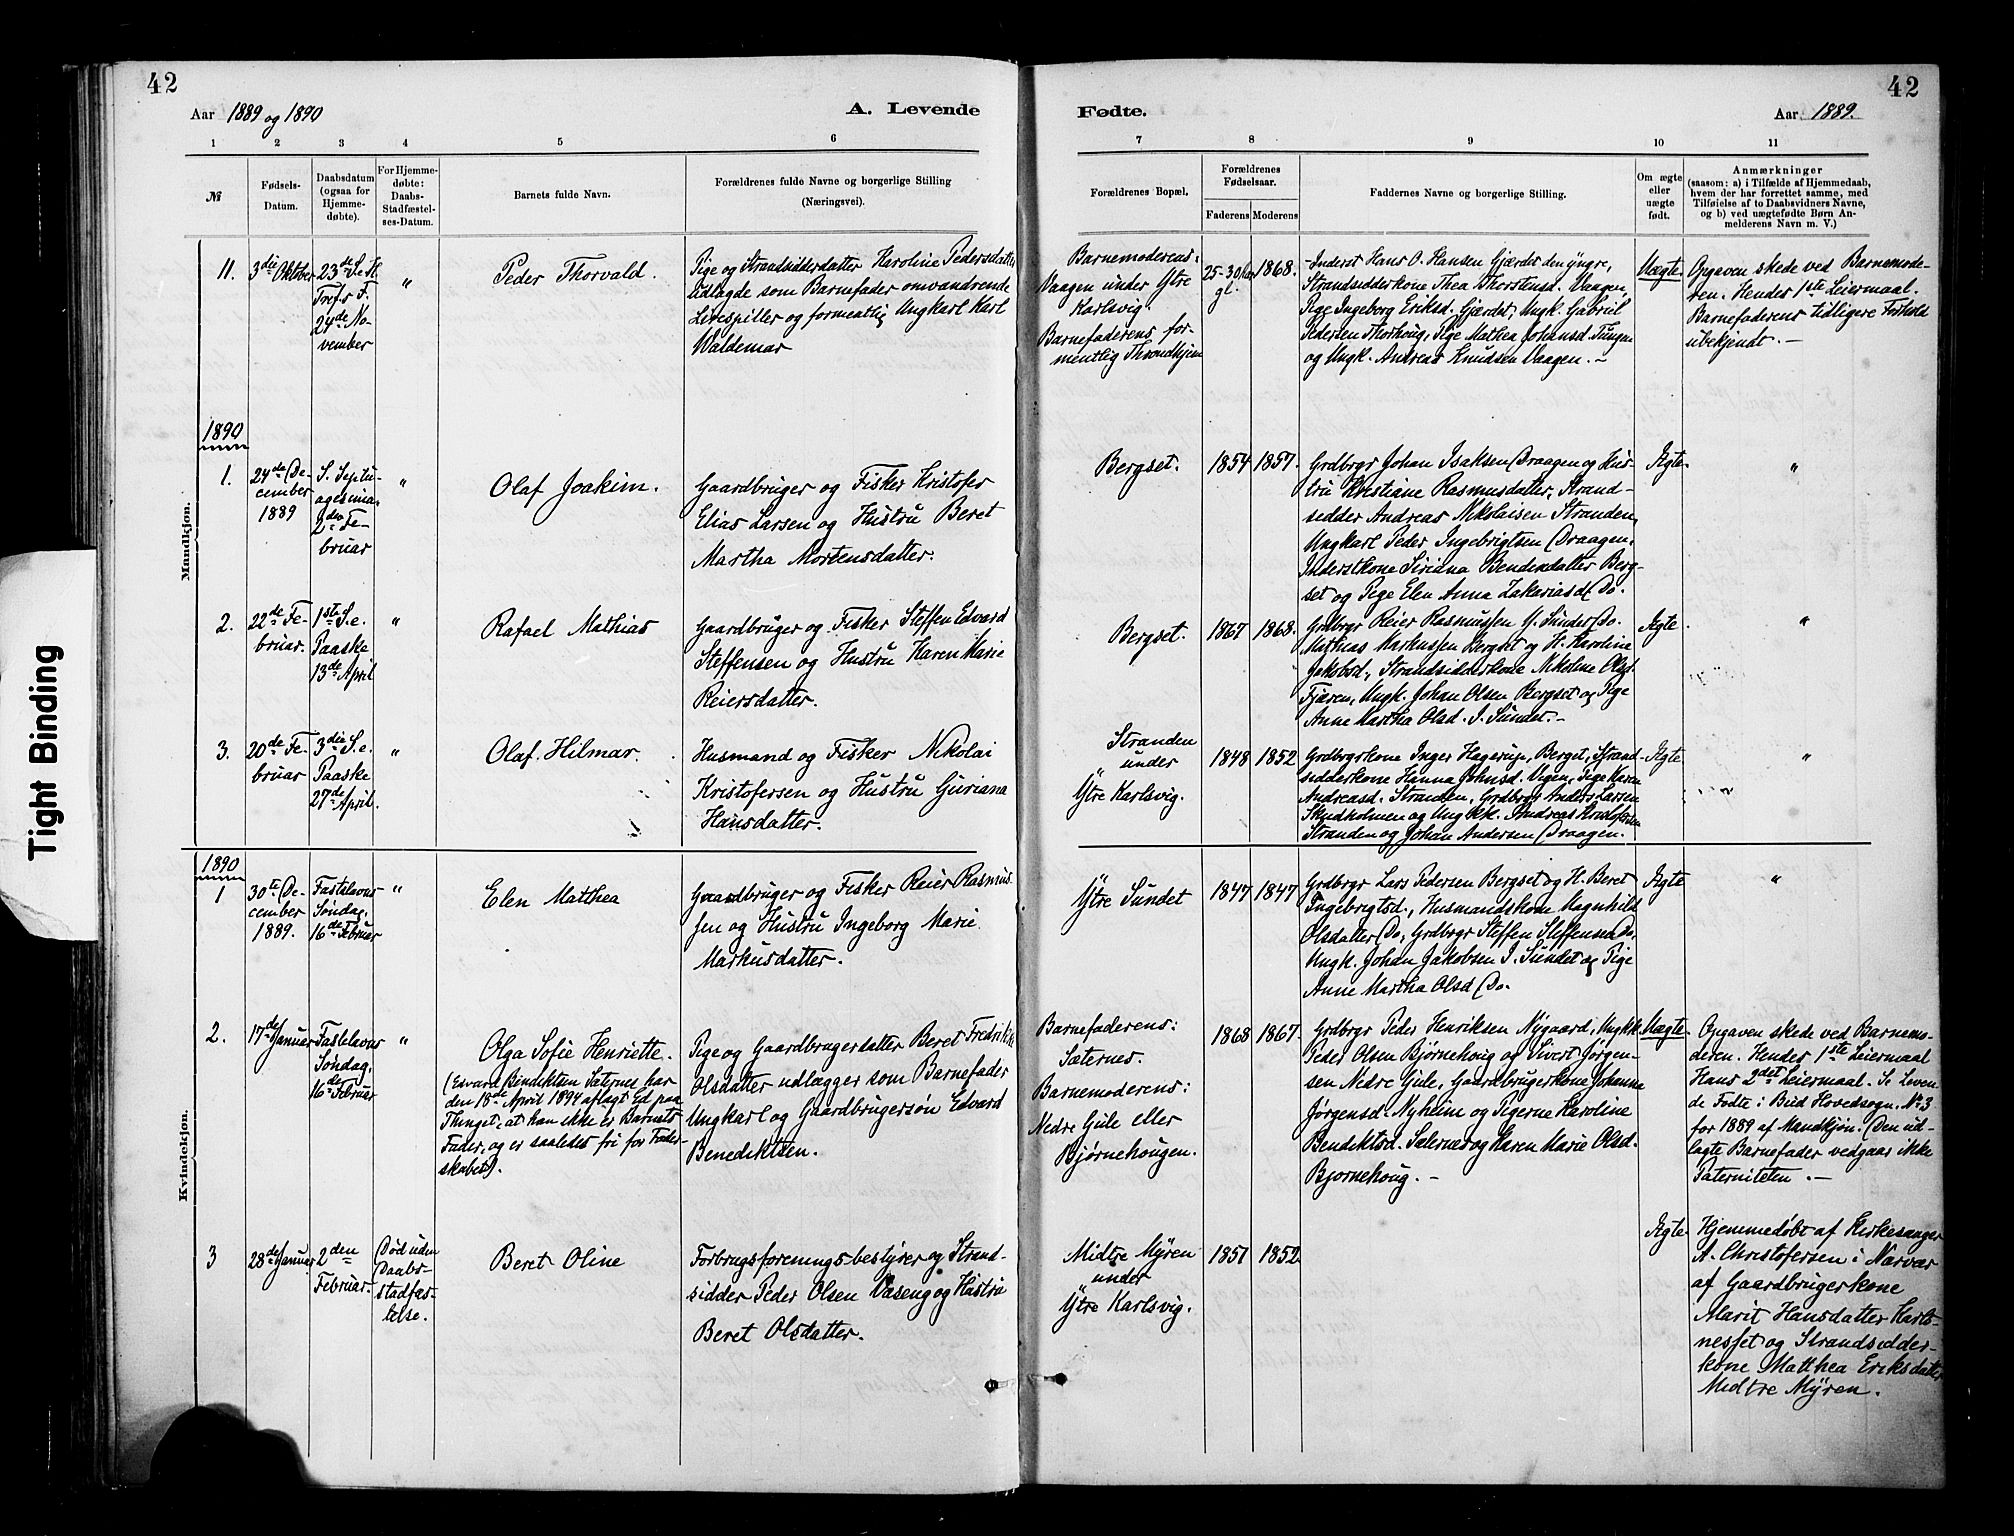 42
Aar 1889 og 1890
A. Levende
1 2 3 4 5 6
№
Fødsels-
Datum.
Daabsdatum
(ogsaa for
Hjemme-
døbte).
For Hjemme-
døbte:
Daabs-
Stadfæstel-
ses-Datum.
Barnets fulde Navn.
Forældrenes fulde Navne og borgerlige Stilling
(Næringsvei).
Mandkjøn.
11.
3die Oktober
23de S. e.
Tref. F.
24de No-
vember
"
Peder Thorvald.
Pige og Strandsidderdatter Karoline Pedersdatter
udlagde som Barnefader omvandrende
Lirespiller og formentlig Ungkarl Karl
Waldemar
1890
1.
24de De-
cember
1889
S. Septu-
agesima
2den Fe-
bruar
"
Olaf Joakim.
Gaardbruger og Fisker Kristofer
Elias Larsen og Hustru Beret
Martha Mortensdatter.
2.
22de Fe-
bruar.
1ste S. e.
Paaske
13de April
"
Rafael Mathias
Gaardbruger og Fisker Steffen Edvard
Steffensen og Hustru Karen Marie
Reiersdatter.
3.
20de Fe-
bruar
3die S. e.
Paaske
27de April.
"
Olaf Hilmar.
Husmand og Fisker Nikolai
Kristofersen og Hustru Guriana
Hansdatter.
Kvindekjøn.
1890
1
30te De-
cember
1889.
Fastelavns
Søndag.
16de Februar
"
Elen Matthea
Gaardbruger og Fisker Reier Rasmus-
sen og Hustru Ingeborg Marie
Markusdatter.
2.
17de Januar
Fastelavns
Søndag.
16de Februar
"
Olga Sofie Henriette.
(Edvard Bendiktsen Sæternes har
den 18de April 1894 aflagt Ed paa
Thinget, at han ikke er Barnets
Fader, og er saaledes fri for Fader-
skabet).
Pige og Gaardbrugerdatter Beret Fredrikke
Olsdatter udlægger som Barnefader
Ungkarl og Gaardbrugersøn Edvard
Benediktsen.
3
28de Januar
2den
Februar.
Død uden
Daabs-
stadfæs-
telse.
Beret Oline
Forbrugsforenings-bestyrer og Strand-
sidder Peder Olsen Vaseng og Hustru
Beret Olsdatter.
42
Fødte.
Aar 1889.
7 8 9 10 11
Forældrenes Bopæl.
Forældrenes
Fødselsaar.
Faderens Moderens
Faddernes Navne og borgerlige Stilling.
Om ægte
eller
uægte
født.
Anmærkninger
(saasom: a) i Tilfælde af Hjemmedaab,
hvem der har forrettet samme, med
Tilføielse af to Daabsvidners Navne,
og b) ved uægtefødte Børn An-
melderens Navn m. V.)
Barnemoderens:
Vaagen under Ytre
Karlsvig.
Barnefaderens for-
mentlig Throndhjem
25-30 Aar
gl.
1868.
Inderst Hans O. Hansen Gjærdet den yngre,
Strandsidderkone Thea Thorstensd. Vaagen,
Pige Ingeborg Eriksd. Gjærdet, Ungk. Gabriel
Pedersen Thorhoug, Pige Mathea Johansd. Tungen
og Ungk. Andreas Knudsen Vaagen. -
Uægte
Opgaven skede ved Barnemode-
ren. Hendes 1ste Leiermaal.
Barnefaderens tidligere Forhold
ubekjendt. -
Bergset.
1854
1857.
Grdbrgr Johan Isaksen Draagen og Hus-
tru Kristiane Rasmusdatter, Strand-
sidder Andreas Nikolaisen Stranden,
Ungkarl Peder Ingebrigtsen Draagen.
Inderstkone Siriana Bendixdatter Berg-
set og Pige Elen Anna Zakariasd. Do.
Ægte
"
Bergset.
1867
1868.
Grdbrgr Reier Rasmussen Y. Sundet, Do.
Mathias Markussen Bergset og H. Karoline
Jakobsd., Strandsidderkone Nikoline Olsd.
Fjæren, Ungk. Johan Olsen Bergset og Pige
Anne Martha Olsd. I. Sundet. -
Ægte
"
Stranden
under
Ytre Karlsvig.
1848
1852
Grdbrgrkone Inger Hagerup, Berget, Strand-
sidderkone Hanna Johnsd. Vegen, Pige Karen
Andreasd. Stranden, Grdbrgr Anders Larsen
Skudholmen og Ungkk. Andreas Kristofersen
Stranden og Johan Andersen Draagen.
Ægte
"
Ytre Sundet
1847
1847
Grdbrgr Lars Pedersen Bergset og H. Beret
Ingebrigtsd., Husmandskone Magnhild
Olsdatter Do, Grdbrgr Steffen Steffensen Do.
Ungk. Johan Jakobsen I. Sundet og Pige
Anne Martha Olsd. Do.
Ægte
"
Barnefaderens:
Sæternes.
Barnemoderens:
Nedre Gule eller
Bjørnehougen.
1868
1867.
Grdbrgr Peder Henriksen Nygaard, Ungkk.
Peder Olsen Bjørnehoug og Sivert Jørgen-
sen Nedre Gule, Gaardbrugerkone Johanna
Jørgensd. Nyheim og Pigerne Karoline
Bendiktsd. Sæternes og Karen Marie Olsd.
Bjørnehoug. -
Uægte
Opgaven skede ved Barnemo-
deren. Hendes 1ste Leiermaal
Hans 2det Leiermaal. Se Leven-
de Fødte i Bud Hovedsogn, No 3
for 1889 af Mandkjøn. (Den ud-
lagte Barnefader vedgaar ikke
Paterniteten. -
Midtre Myren
under
Ytre Karlsvig.
1851
1852
Ægte
Hjemmedøbt af Kirkesanger
A. Christofersen i Narvær
af Gaardbrugerkone
Marit Hansdatter Karls-
nesset og Strandsidder-
kone Matthea Eriksdatter
Midtre Myren.
Tight Binding